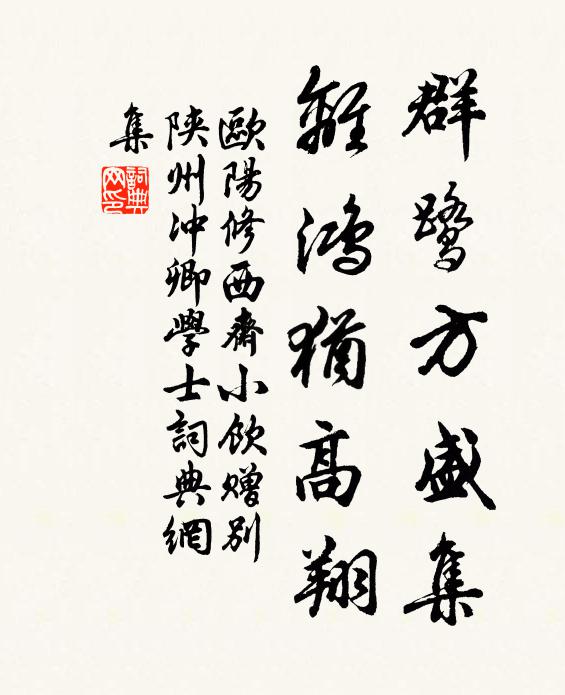 群鹭方盛集
離鴻猶高翔
歐陽修西齋小飲赠别
陝州冲卿學士詞典網
集
詞典
网印